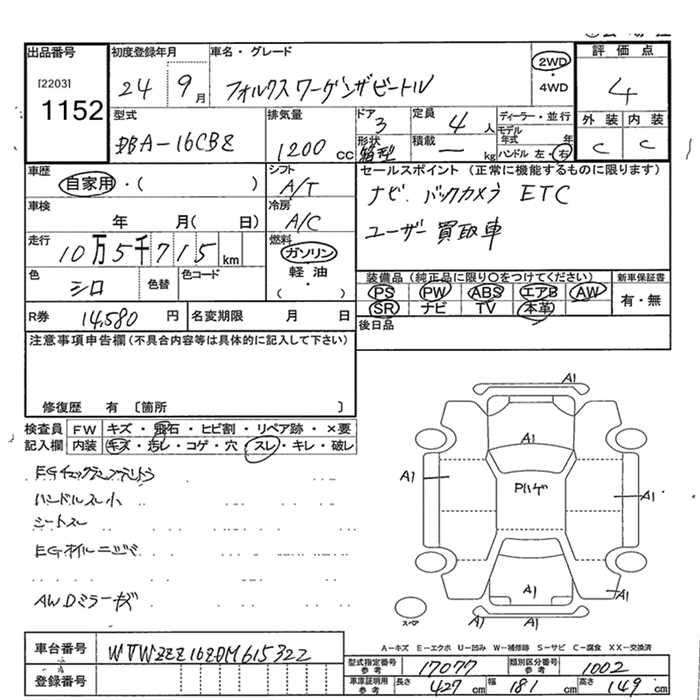 出品番号
[2203]
1152
初度登録年月
24 年 9 月
車名・グレード
フォルクスワーゲンザビートル
2WD
・
4WD
評価点
4
型式
DBA-16CBZ
排気量
1200 cc
ドア
3
形状
箱型
定員
4 人
積載
— kg
ディーラー・並行
モデル年式 年
ハンドル 左・右
外装 内装
C C
車歴
自家用・( )
シフト
A/T
車検
年 月( 日)
冷房
A/C
走行
10万5千715 km
燃料
ガソリン
軽油・
( )
色
シロ
色替
色コード
セールスポイント(正常に機能するものに限ります)
ナビ. バックカメラ ETC
ユーザー買取車
装備品(純正品に限り○をつけてください)
新車保証書
PS PW ABS エアB AW
SR ナビ TV 本革
有・無
R券 14,580 円
名変期限 月 日
後日品
注意事項申告欄(不具合内容等は具体的に記入して下さい)
修復歴 有 〔箇所 〕
検査員
記入欄
FW キズ・飛石・ヒビ割・リペア跡・×要
内装 キズ・汚レ・コゲ・穴・スレ・キレ・破レ
ハンドルスレ小
シートスレ
EGオイルニジミ
AW Dミラーキズ
A1
A1
A1
Pハゲ
A1
A1
A1
A1 A1
スペア
A-キズ E-エクボ U-凹み W-補修跡 S-サビ C-腐食 XX-交換済
車台番号 WVWZZZ16ZDM615322
登録番号
型式指定番号 参考 17077
類別区分番号 参考 1002
車庫証明用 参考 長さ 427 cm 幅 181 cm 高さ 149 cm